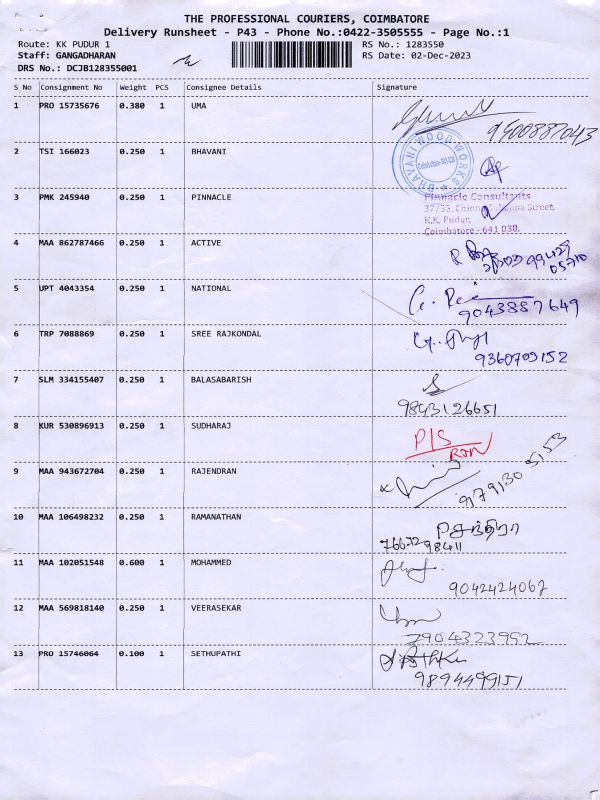 THE PROFESSIONAL COURIERS, COIMBATORE
Delivery Runsheet - P43 - Phone No.:0422-3505555 - Page No.:1
Route: KK PUDUR 1
RS No.: 1283550
Staff: GANGADHARAN
RS Date: 02-Dec-2023
DRS No.: DCJB128355001
S No Consignment No Weight PCS Consignee Details Signature
1 PRO 15735676 0.380 1 UMA
9500887043
2 TSI 166023 0.250 1 BHAVANI
BHAVANI WOOD WORKS
3 PMK 245940 0.250 1 PINNACLE
Pinnacle Consultants
37/33, Street,
K.K. Pudur,
Coimbatore - 641 038.
4 MAA 862787466 0.250 1 ACTIVE
99429
05710
5 UPT 4043354 0.250 1 NATIONAL
9043887649
6 TRP 7088869 0.250 1 SREE RAJKONDAL
9360709152
7 SLM 334155407 0.250 1 BALASABARISH
9843126651
8 KUR 530896913 0.250 1 SUDHARAJ
P/S
RTN
9 MAA 943672704 0.250 1 RAJENDRAN
9179130 5153
10 MAA 106498232 0.250 1 RAMANATHAN
சந்திரா
98411
11 MAA 102051548 0.600 1 MOHAMMED
9042424067
12 MAA 569818140 0.250 1 VEERASEKAR
7904323992
13 PRO 15746064 0.100 1 SETHUPATHI
9894499151